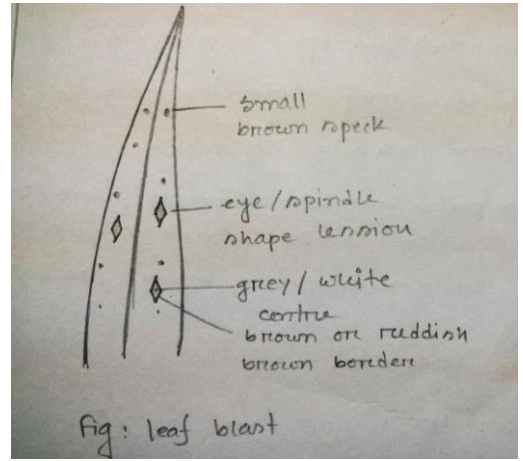 small
brown speck
eye/spindle
shape lession
grey/white
centre
brown or reddish
brown border
Fig: leaf blast